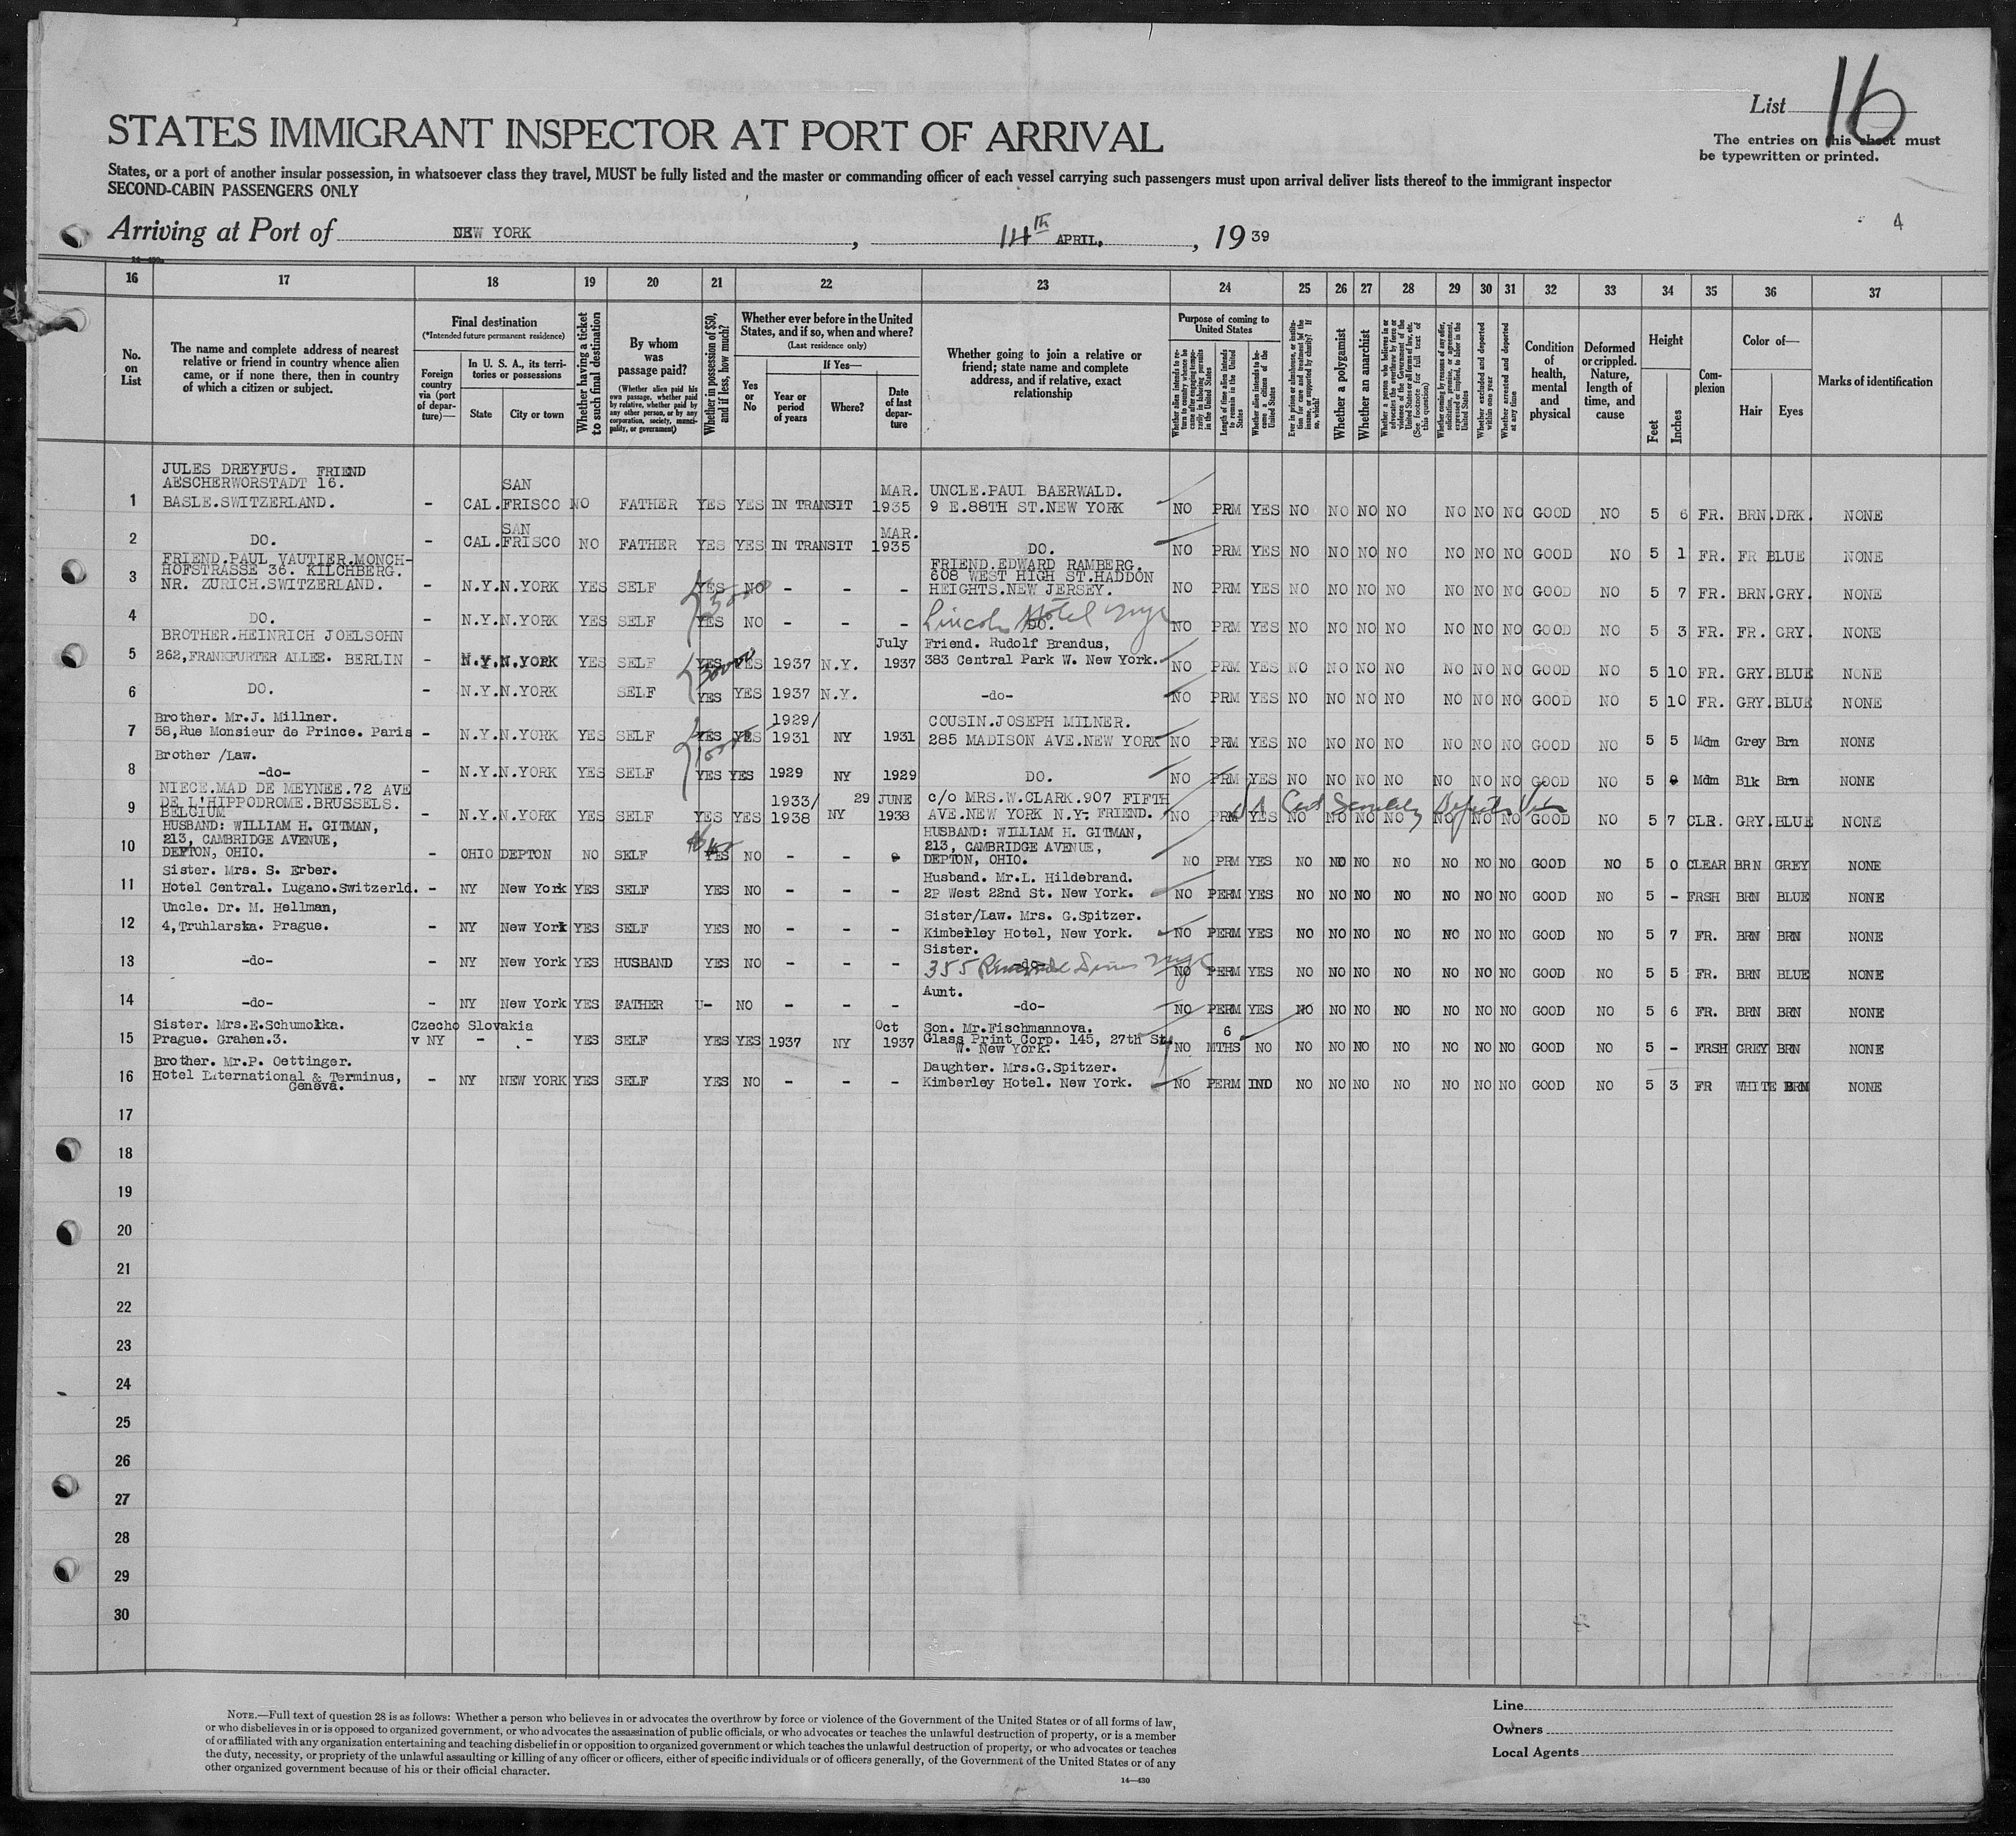 List 16
STATES IMMIGRANT INSPECTOR AT PORT OF ARRIVAL
The entries on this sheet must
be typewritten or printed.
States, or a port of another insular possession, in whatsoever class they travel, MUST be fully listed and the master or commanding officer of each vessel carrying such passengers must upon arrival deliver lists thereof to the immigrant inspector
SECOND-CABIN PASSENGERS ONLY
4
Arriving at Port of NEW YORK, 14th APRIL, 1939
14-430
16 17 18 19 20 21 22 23 24 25 26 27 28 29 30 31 32 33 34 35 36 37
No. on List
The name and complete address of nearest relative or friend in country whence alien came, or if none there, then in country of which a citizen or subject.
Final destination
(*Intended future permanent residence)
Foreign country via (port of departure)—
In U. S. A., its territories or possessions
State
City or town
Whether having a ticket to such final destination
By whom was passage paid?
(Whether alien paid his own passage, whether paid by relative, whether paid by any other person, or by any corporation, society, municipality, or government)
Whether in possession of $50, and if less, how much?
Whether ever before in the United States, and if so, when and where?
(Last residence only)
Yes or No
If Yes—
Year or period of years
Where?
Date of last departure
Whether going to join a relative or friend; state name and complete address, and if relative, exact relationship
Purpose of coming to United States
Whether alien intends to return to country whence he came after engaging temporarily in laboring pursuits in the United States
Length of time alien intends to remain in the United States
Whether alien intends to become a citizen of the United States
Ever in prison or almshouse, or institution for care and treatment of the insane, or supported by charity? If so, which?
Whether a polygamist
Whether an anarchist
Whether a person who believes in or advocates the overthrow by force or violence of the Government of the United States or all forms of law, etc. (See footnote for full text of this question)
Whether coming by reasons of any offer, solicitation, promise, or agreement, expressed or implied, to labor in the United States
Whether excluded and deported within one year
Whether arrested and deported at any time
Condition of health, mental and physical
Deformed or crippled. Nature, length of time, and cause
Height
Feet
Inches
Complexion
Color of—
Hair
Eyes
Marks of identification
JULES DREYFUS. FRIEND
AESCHERWORSTADT 16.
1 BASLE.SWITZERLAND. - CAL. SAN FRISCO NO FATHER YES YES IN TRANSIT MAR. 1935 UNCLE.PAUL BAERWALD. 9 E.88TH ST.NEW YORK NO PRM YES NO NO NO NO NO NO NO GOOD NO 5 6 FR. BRN. DRK. NONE
2 DO. - CAL. SAN FRISCO NO FATHER YES YES IN TRANSIT MAR. 1935 DO. NO PRM YES NO NO NO NO NO NO NO GOOD NO 5 1 FR. FR BLUE NONE
FRIEND.PAUL VAUTIER.MONCH-
HOFSTRASSE 36. KILCHBERG.
3 NR. ZURICH.SWITZERLAND. - N.Y. N.YORK YES SELF YES NO - - - FRIEND.EDWARD RAMBERG. 608 WEST HIGH ST.HADDON HEIGHTS.NEW JERSEY. NO PRM YES NO NO NO NO NO NO NO GOOD NO 5 7 FR. BRN. GRY. NONE
4 DO. - N.Y. N.YORK YES SELF YES NO - - - DO. Lincoln Hotel nyc NO PRM YES NO NO NO NO NO NO NO GOOD NO 5 3 FR. FR. GRY. NONE
BROTHER.HEINRICH JOELSOHN
5 262,FRANKFURTER ALLEE. BERLIN - N.Y. N.YORK YES SELF YES YES 1937 N.Y. July 1937 Friend. Rudolf Brandus, 383 Central Park W. New York. NO PRM YES NO NO NO NO NO NO NO GOOD NO 5 10 FR. GRY. BLUE NONE
6 DO. - N.Y. N.YORK SELF YES YES 1937 N.Y. -do- NO PRM YES NO NO NO NO NO NO NO GOOD NO 5 10 FR. GRY. BLUE NONE
Brother. Mr.J. Millner.
7 58,Rue Monsieur de Prince. Paris - N.Y. N.YORK YES SELF YES YES 1929/1931 NY 1931 COUSIN.JOSEPH MILNER. 285 MADISON AVE.NEW YORK NO PRM YES NO NO NO NO NO NO NO GOOD NO 5 5 Mdm Grey Brn NONE
Brother /Law.
8 -do- - N.Y. N.YORK YES SELF YES YES 1929 NY 1929 DO. NO PRM YES NO NO NO NO NO NO NO GOOD NO 5 Mdm Blk Brn NONE
NIECE.MAD DE MEYNEE.72 AVE
DE L'HIPPODROME.BRUSSELS.
9 BELGIUM - N.Y. N.YORK YES SELF YES YES 1933/1938 NY 29 JUNE 1938 c/o MRS.W.CLARK.907 FIFTH AVE.NEW YORK N.Y- FRIEND. NO PRM YES NO NO NO NO NO NO NO GOOD NO 5 7 CLR. GRY. BLUE NONE
HUSBAND: WILLIAM H. GITMAN,
213, CAMBRIDGE AVENUE,
10 DEPTON, OHIO. - OHIO DEPTON NO SELF YES NO - - HUSBAND: WILLIAM H. GITMAN, 213, CAMBRIDGE AVENUE, DEPTON, OHIO. NO PRM YES NO NO NO NO NO NO NO GOOD NO 5 0 CLEAR BRN GREY NONE
Sister. Mrs. S. Erber.
11 Hotel Central. Lugano.Switzerld. - NY New York YES SELF YES NO - - - Husband. Mr.L. Hildebrand. 2P West 22nd St. New York. NO PERM YES NO NO NO NO NO NO NO GOOD NO 5 - FRSH BRN BLUE NONE
Uncle. Dr. M. Hellman,
12 4,Truhlarska. Prague. - NY New York YES SELF YES NO - - - Sister/Law. Mrs. G.Spitzer. Kimberley Hotel, New York. NO PERM YES NO NO NO NO NO NO NO GOOD NO 5 7 FR. BRN BRN NONE
13 -do- - NY New York YES HUSBAND YES NO - - - Sister. -do- 355 Riverside Drive nyc NO PERM YES NO NO NO NO NO NO NO GOOD NO 5 5 FR. BRN BLUE NONE
14 -do- - NY New York YES FATHER U- NO - - - Aunt. -do- NO PERM YES NO NO NO NO NO NO NO GOOD NO 5 6 FR. BRN BRN NONE
Sister. Mrs.E.Schumolka.
15 Prague. Grahen.3. Czecho Slovakia v NY - - YES SELF YES YES 1937 NY Oct 1937 Son. Mr.Fischmannova. Glass Print Corp. 145, 27th St. W. New York. NO 6 MTHS NO NO NO NO NO NO NO NO GOOD NO 5 - FRSH GREY BRN NONE
Brother. Mr.P. Oettinger.
16 Hotel International & Terminus, Geneva. - NY NEW YORK YES SELF YES NO - - - Daughter. Mrs.G.Spitzer. Kimberley Hotel. New York. NO PERM IND NO NO NO NO NO NO NO GOOD NO 5 3 FR WHITE BRN NONE
17
18
19
20
21
22
23
24
25
26
27
28
29
30
NOTE.—Full text of question 28 is as follows: Whether a person who believes in or advocates the overthrow by force or violence of the Government of the United States or of all forms of law,
or who disbelieves in or is opposed to organized government, or who advocates the assassination of public officials, or who advocates or teaches the unlawful destruction of property, or is a member
of or affiliated with any organization entertaining and teaching disbelief in or opposition to organized government or which teaches the unlawful destruction of property, or who advocates or teaches
the duty, necessity, or propriety of the unlawful assaulting or killing of any officer or officers, either of specific individuals or of officers generally, of the Government of the United States or of any
other organized government because of his or their official character.
14—430
Line
Owners
Local Agents